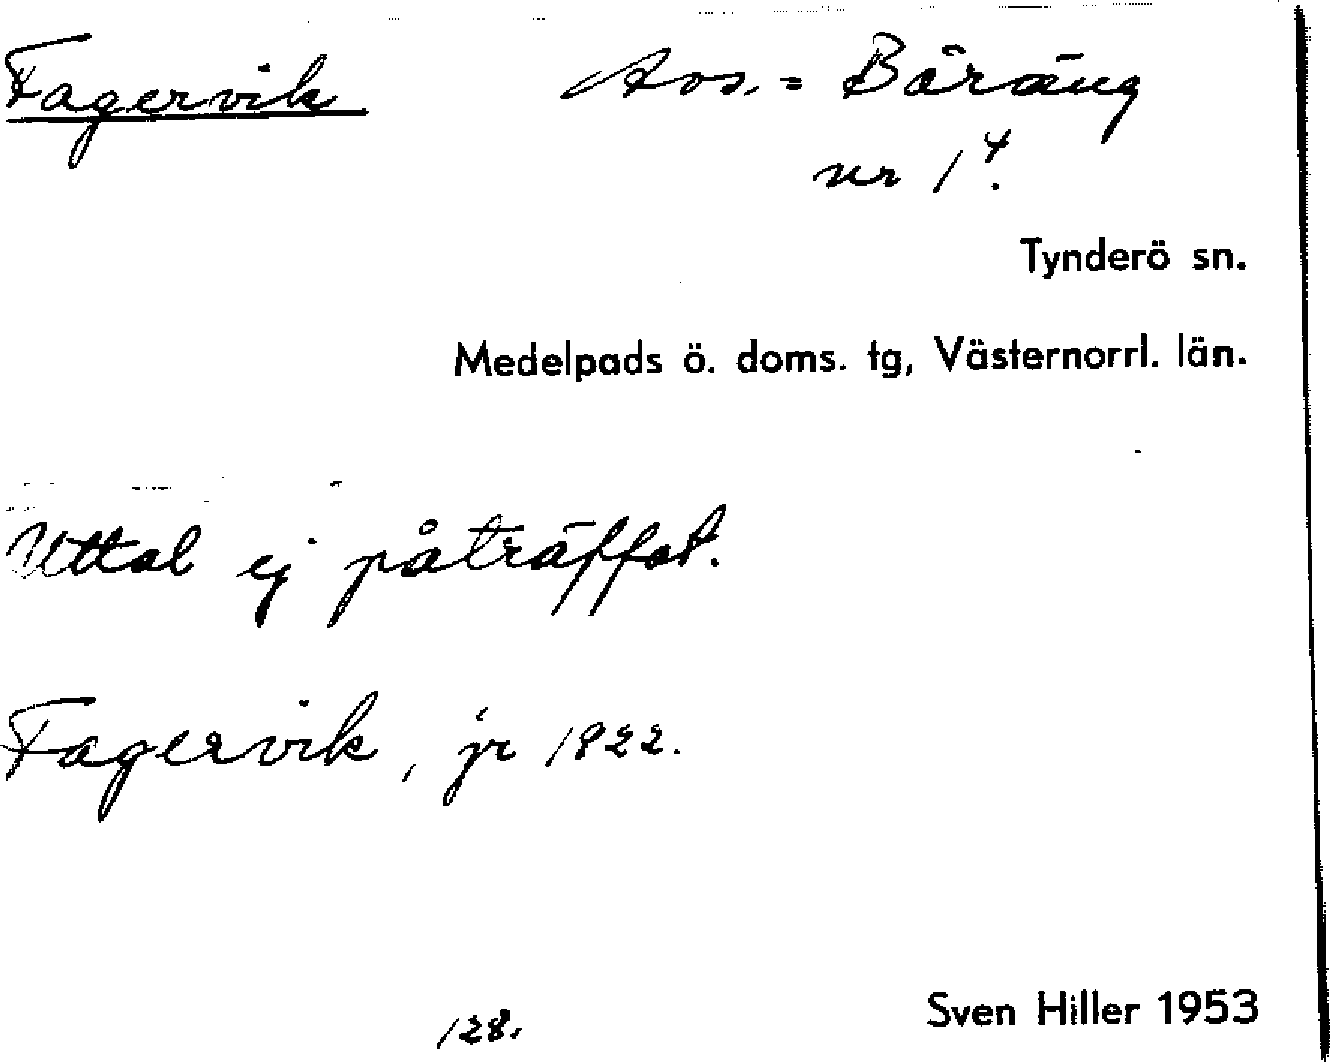 Fagervik Avs. = Böräng
nr 1⁴.
Tynderö sn.
Medelpads ö. doms. tg, Västernorrl. län.
Uttal ej påträffat.
Fagervik, jr 1822.
128.
Sven Hiller 1953